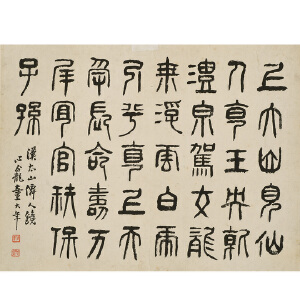 上大山見仙
人食玉英飲
澧泉駕交龍
乘浮雲白虎
引兮直上天
受長命壽万
年宜官秩保
子孫
漢太山僊人鏡
心龕童大年